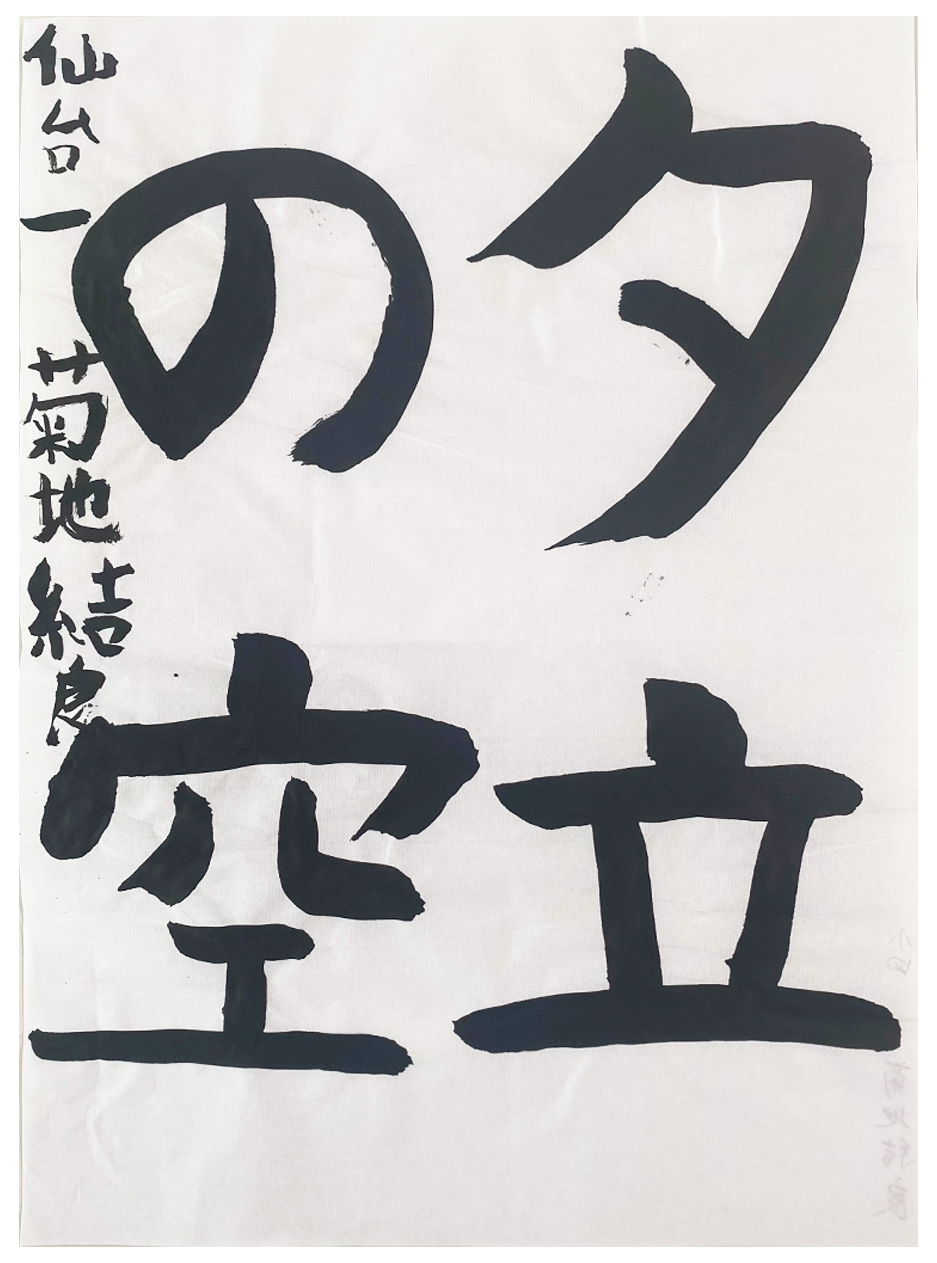 夕立
の空
仙台一 菊地結良